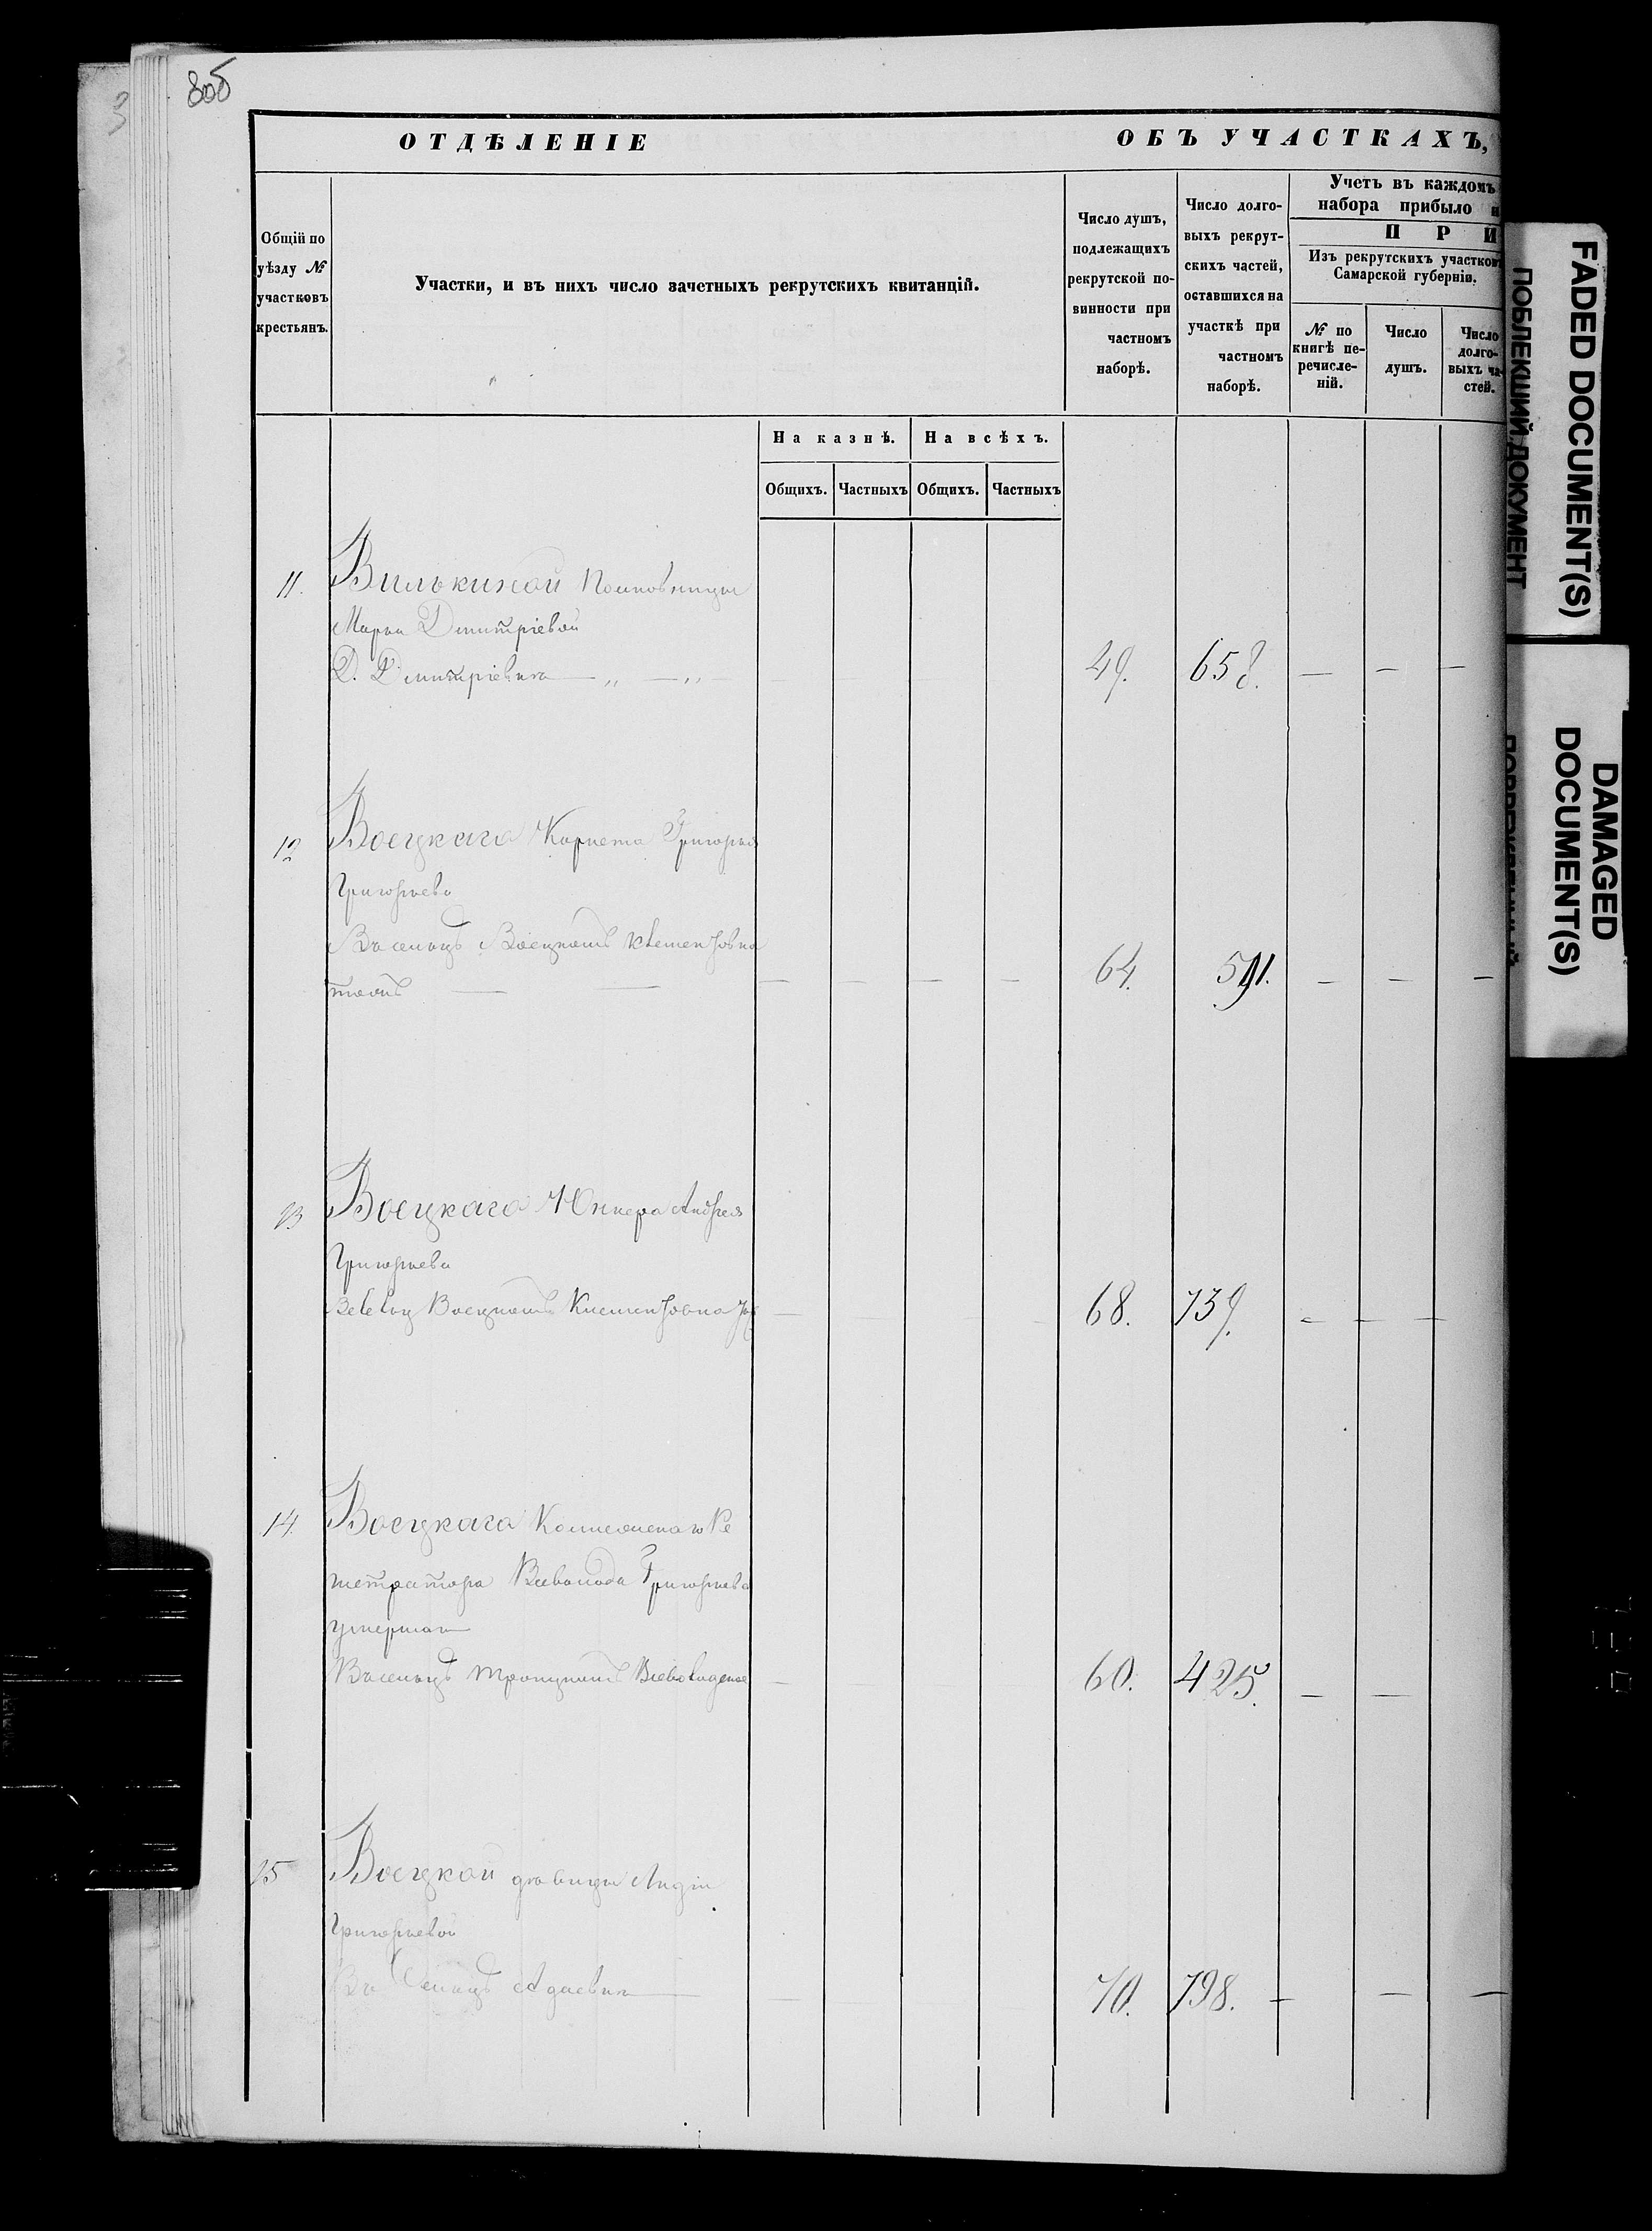 8об
3
ОТДѢЛЕНІЕ
ОБЪ УЧАСТКАХЪ,
Общій по уѣзду № участковъ крестьянъ.
Участки, и въ нихъ число зачетныхъ рекрутскихъ квитанцій.
Число душъ, подлежащихъ рекрутской повинности при частномъ наборѣ.
Число долговыхъ рекрутскихъ частей, оставшихся на участкѣ при частномъ наборѣ.
Учетъ въ каждомъ
набора прибыло
ПРИ
Изъ рекрутскихъ участковъ
Самарской губерніи.
№ по книгѣ перечисленій.
Число душъ.
Число долговыхъ частей.
На казнѣ. На всѣхъ.
Общихъ. Частныхъ Общихъ. Частныхъ
11. Вилькиной
Марьи Дмитріевой
Д. Дмитріевка — „ — „ — 49. 658. — — —
12 Воецкаго Корнета Григорья
Григорьева
Въ сельцѣ Воецкомъ
тожъ — — — — — — 64. 591. — — —
13 Воецкаго Юнкера Андрея
Григорьева
Воецкомъ 68. 739. — — —
14. Воецкаго Коллежскаго Ре
гистратора Всеволода Григорьева
умершаго
Въ сельцѣ Троицкомъ 60. 425. — —
15 Воецкой дѣвицы Лидіи
Григорьевой
Въ Сельцѣ 70. 798. — — —
FADED DOCUMENT(S)
ПОБЛЕКШИЙ ДОКУМЕНТ
DAMAGED
DOCUMENT(S)